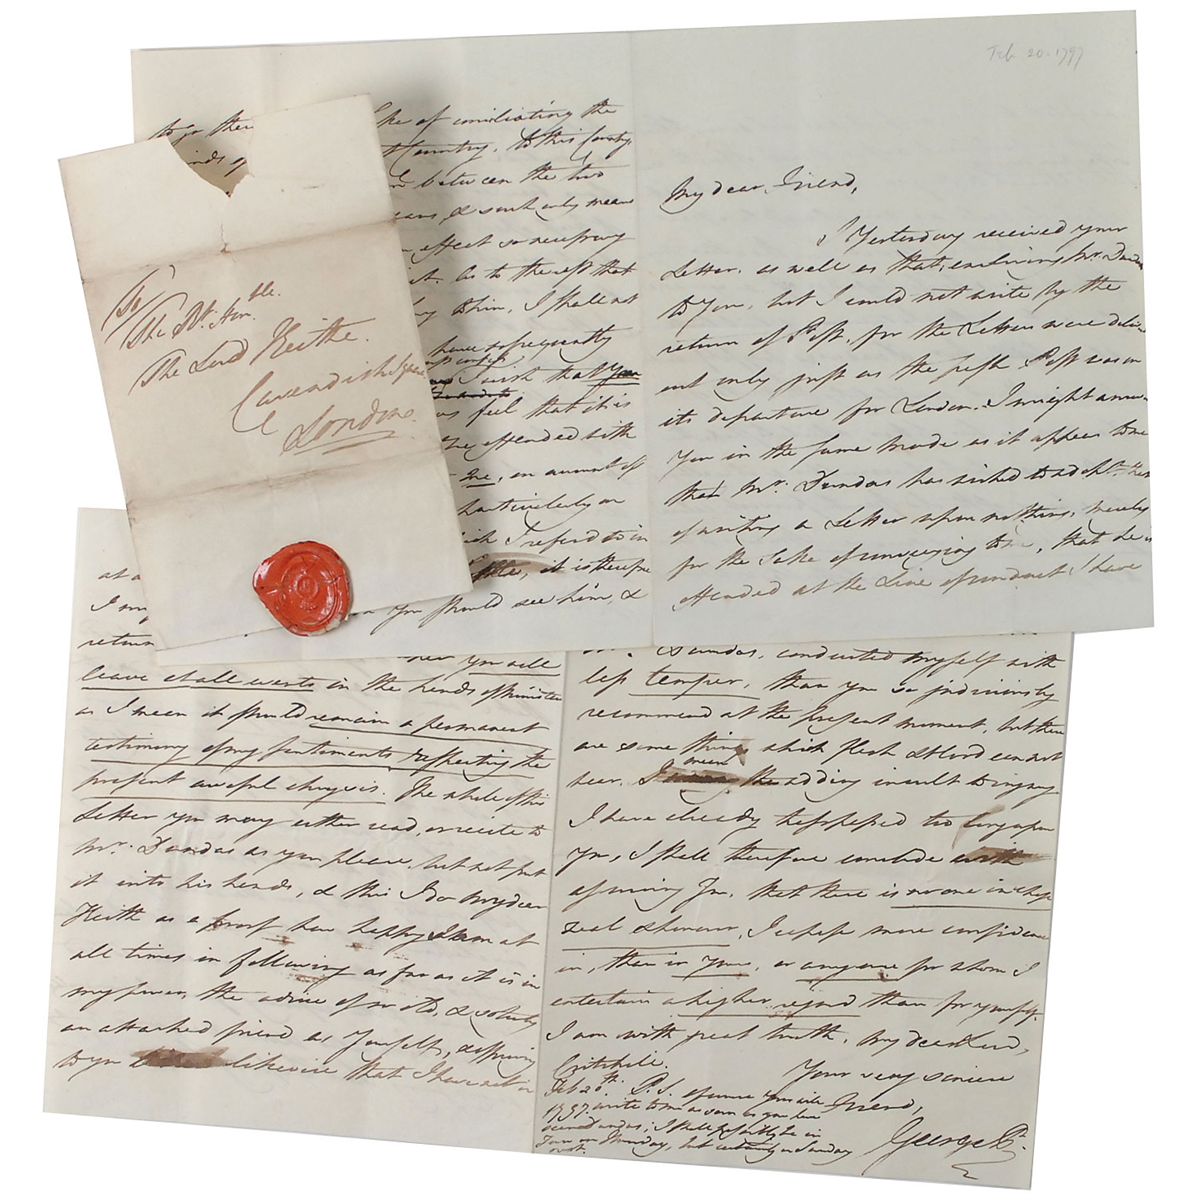 Feb. 20. 1797
To
The Rt. Honble.
The Lord Keithe.
Cavendish Square
London.
of conciliating the
Country, to this County,
between the two
& such only means
effect so necessary
as to the rest that
to him, I shall not
have so frequently
I wish that you
feel that it is
offended with
me, on account of
particularly on
I refer to in
it is therefore
you should see him, &
My dear Friend,
I Yesterday received your
Letter, as well as that, enclosing Mr. Dundas
to You, but I could not write by the
return of Post, for the Letters were
out only just as the fresh Post was on
its departure for London. I might answer
You in the same mode as it appears to me
that Mr. Dundas has wished to adopt
of writing a Letter upon nothing, merely
for the Sake of conveying to me, that he is
offended at the Line of conduct I have
at
I
return
you will
leave it all
in the hands of Minister
as I mean it should remain a permanent
testimony of my sentiments respecting the
present awful crisis. The whole of this
Letter you may either read, or recite to
Mr. Dundas as you please, but not put
it into his hands, & this I do my dear
Keith as a proof how happy I am at
all times in following as far as it is in
my power, the advice of so old, &
an attached friend as Yourself,
to you likewise that I have not in
Mr. Dundas, conducted myself with
less temper, than you so judiciously
recommend at the present moment, but there
are some things which flesh & blood cannot
bear, I mean the adding insult to injury.
I have already trespassed too long upon
You, I shall therefore conclude with
assuring You, that there is no one in whose
zeal & honour, I repose more confidence
in, than in Yours, or anyone for whom I
entertain a higher regard than for yourself.
I am with great truth, my dear Lord,
Critchile.
Your very sincere
Friend,
George P.
Feb. 20th.
1797.
P.S. of course You will
write to me as soon as you have
seen Dundas; I shall possibly be in
Town on Thursday, but certainly on Sunday
next.